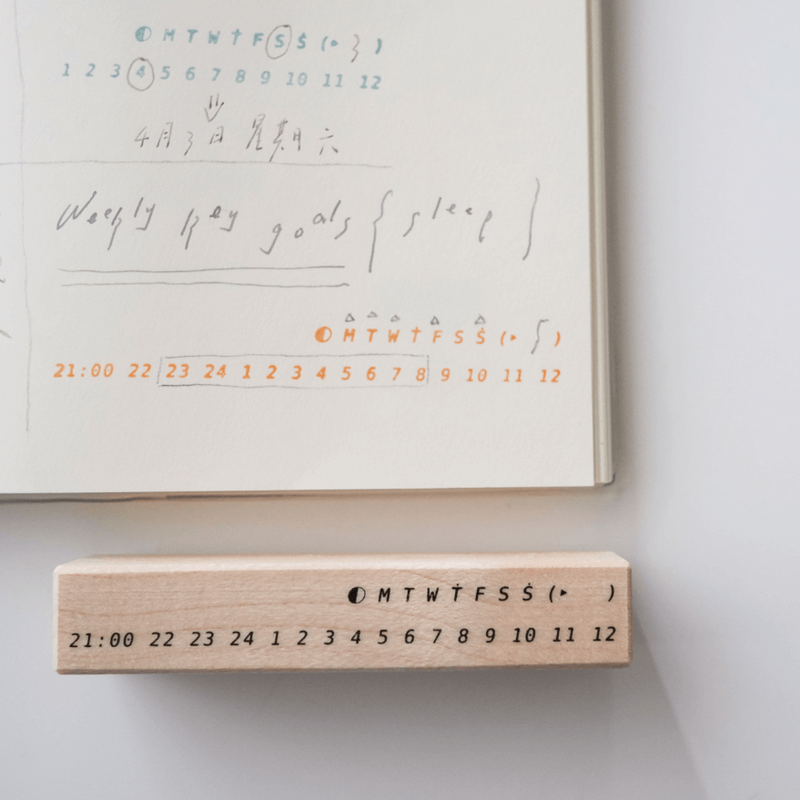 ◐ M T W Ṫ F S Ṡ (▸ 3 )
1 2 3 4 5 6 7 8 9 10 11 12
4月3日 星期六
Weekly key goals { sleep }
◐ M T W Ṫ F S Ṡ (▸ )
21:00 22 23 24 1 2 3 4 5 6 7 8 9 10 11 12
◐ M T W Ṫ F S Ṡ (▸ )
21:00 22 23 24 1 2 3 4 5 6 7 8 9 10 11 12